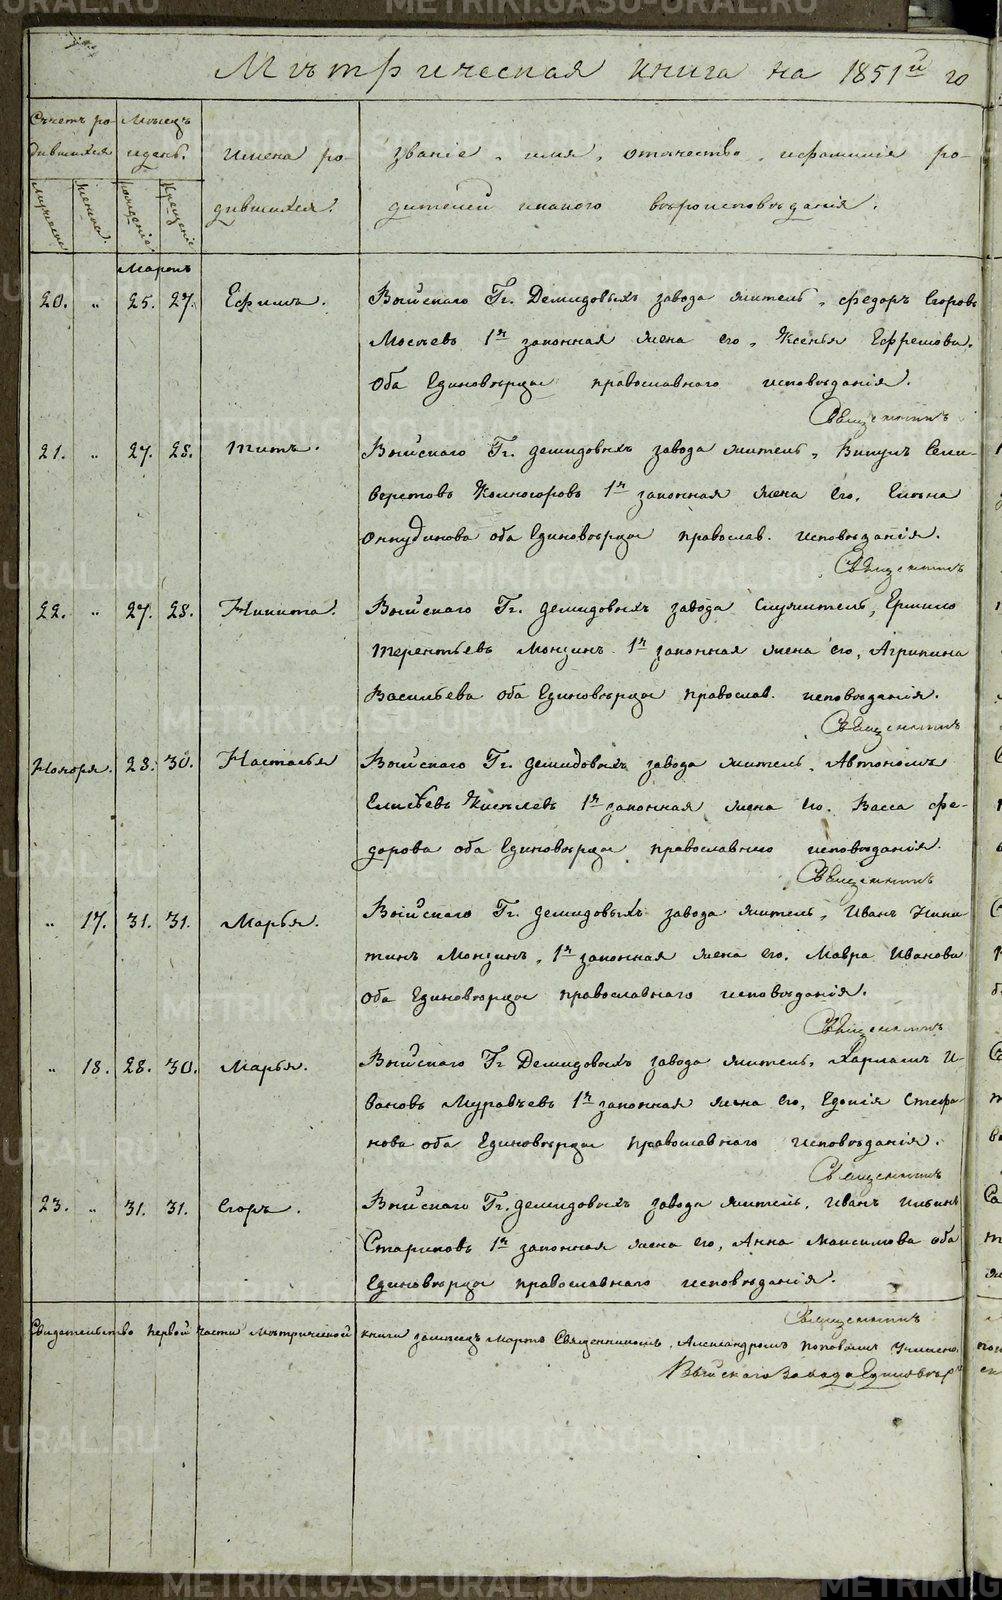 Мѣтрическая книга на 1851й го
Счетъ ро- Месяцъ
дившихся идень. имена ро- званіе, имя, отечество, ифамилія ро-
мужеска женска. рожденіе. крещеніе дившихся. дителей икакого вѣроисповѣданія.
Мартъ
20. „ 25. 27. Ефимъ. Выйскаго Гг. Демидовыхъ завода житель, федоръ Егоровъ
1я законная жена его, Ксенья Ефремова.
оба Единовѣрцы православнаго исповѣданія.
Священникъ
21. „ 27. 28. Титъ. Выйскаго Гг. демидовыхъ завода житель, Викулъ Сели-
верстовъ Колногоровъ 1я законная жена его, Елена
Онкудинова оба Единовѣрцы православ. исповѣданія.
Священникъ
22. „ 27. 28. Никита. Выйскаго Гг. демидовыхъ завода служитель, Ермило
терентьевъ Монзинъ 1я законная жена его, Агрипина
Васильева оба Единовѣрцы православ. исповѣданія.
Священникъ
28. 30. Настасья Выйскаго Гг. демидовыхъ завода житель, Автономъ
Елисѣевъ Киселевъ 1я законная жена его. Васса фе-
дорова оба Единовѣрцы православнаго исповѣданія.
Священникъ
„ 17. 31. 31. Марья. Выйскаго Гг. демидовыхъ завода житель, Иванъ Ники-
тинъ Монзинъ, 1я законная жена его, Мавра Иванова
оба Единовѣрцы православнаго исповѣданія.
Священникъ
„ 18. 28. 30. Марья. Выйскаго Гг Демидовыхъ завода житель, Харлами И-
вановъ Муравьевъ 1я законная жена его, Едокія Стефа-
нова оба Единовѣрцы православнаго исповѣданія.
Священникъ
23. „ 31. 31. Егоръ. Выйскаго Гг. демидовыхъ завода житель, Иванъ Ильинъ
Стариковъ 1я законная жена его, Анна Максимова оба
Единовѣрцы православнаго исповѣданія.
Священникъ
Свидетельство первой части Мѣтрической книги замесяцъ Мартъ Священникомъ, Александромъ Поповымъ
Выйскаго Завода Единовѣр